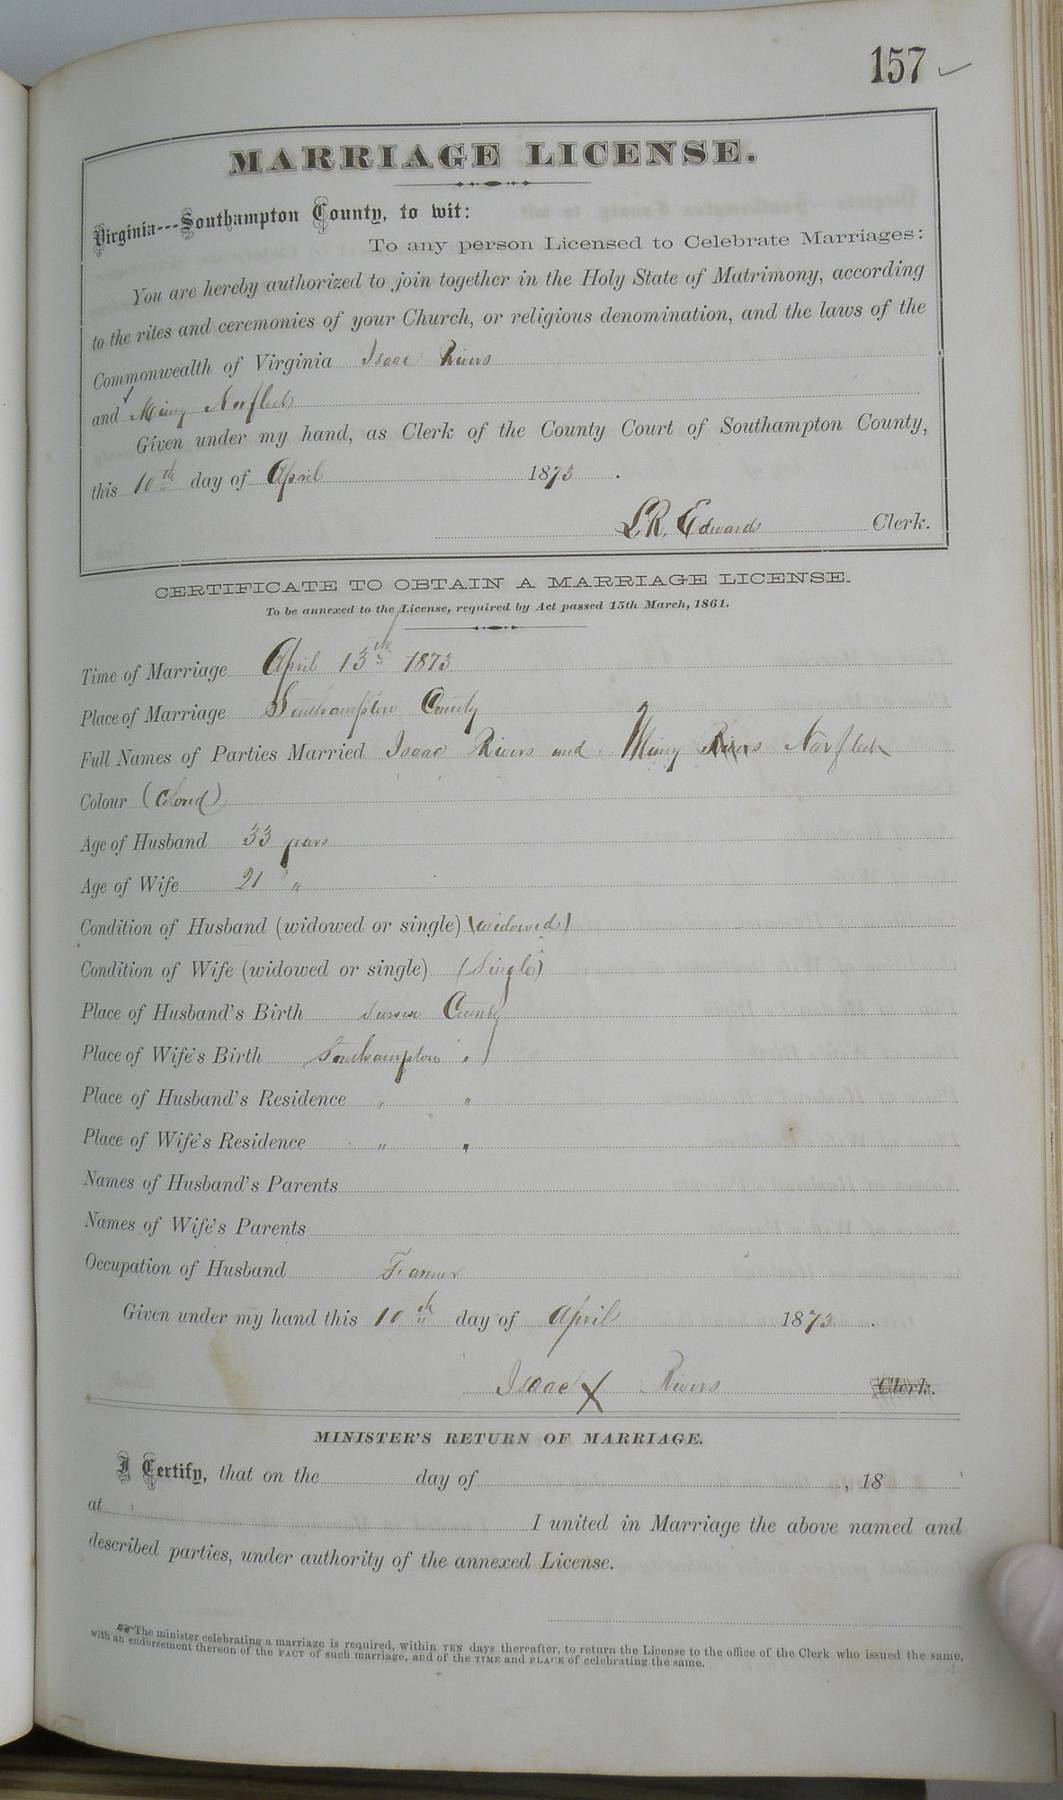 157 ✓
MARRIAGE LICENSE.
Virginia---Southampton County, to wit:
To any person Licensed to Celebrate Marriages:
You are hereby authorized to join together in the Holy State of Matrimony, according
to the rites and ceremonies of your Church, or religious denomination, and the laws of the
Commonwealth of Virginia Isaac Rivers
and Mimy Norfleck
Given under my hand, as Clerk of the County Court of Southampton County,
this 10th day of April 1873.
L.R. Edwards Clerk.
CERTIFICATE TO OBTAIN A MARRIAGE LICENSE.
To be annexed to the License, required by Act passed 15th March, 1861.
Time of Marriage April 13th 1873
Place of Marriage Southampton County
Full Names of Parties Married Isaac Rivers and Mimy Rivers Norfleck
Colour (Colored)
Age of Husband 33 years
Age of Wife 21 "
Condition of Husband (widowed or single) (widowed)
Condition of Wife (widowed or single) (Single)
Place of Husband's Birth Sussex County
Place of Wife's Birth Southampton "
Place of Husband's Residence " "
Place of Wife's Residence " "
Names of Husband's Parents
Names of Wife's Parents
Occupation of Husband Farmer
Given under my hand this 10th day of April 1873.
Isaac X Rivers Clerk.
MINISTER'S RETURN OF MARRIAGE.
I Certify, that on the day of , 18
at I united in Marriage the above named and
described parties, under authority of the annexed License.
The minister celebrating a marriage is required, within TEN days thereafter, to return the License to the office of the Clerk who issued the same,
with an endorsement thereon of the FACT of such marriage, and of the TIME and PLACE of celebrating the same.